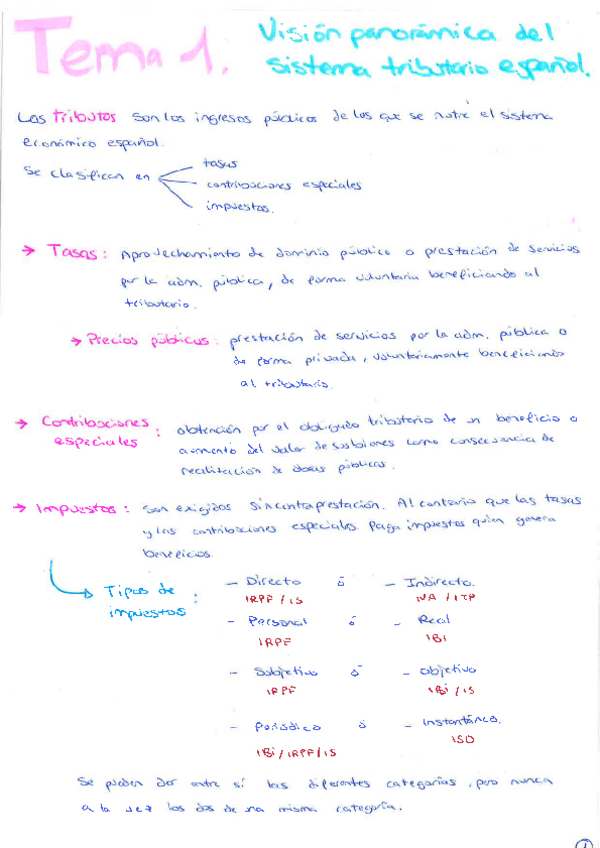 Tema 1. Visión panorámica del
sistema tributario español.
Los tributos son los ingresos públicos de los que se nutre el sistema
económico español.
Se clasifican en
tasas
contribuciones especiales
impuestos.
→ Tasas: Aprovechamiento de dominio público o prestación de servicios
por la adm. pública, de forma voluntaria beneficiando al
tributario.
→ Precios públicos: prestación de servicios por la adm. pública o
de forma privada, voluntariamente beneficiando
al tributario.
→ Contribuciones especiales: obtención por el obligado tributario de un beneficio o
aumento del valor de sus bienes como consecuencia de
realización de obras públicas.
→ Impuestos: son exigidos sin contraprestación. Al contrario que las tasas
y las contribuciones especiales. Paga impuestos quien genera
beneficios.
Tipos de impuestos:
- Directo ó - Indirecto.
IRPF / IS IVA / ITP
- Personal ó - Real
IRPF IBI
- Subjetivo ó - Objetivo
IRPF IBI / IS
- Periódico ó - Instantáneo.
IBI / IRPF / IS ISD
Se pueden dar entre sí las diferentes categorías, pero nunca
a la vez los dos de una misma categoría.
1